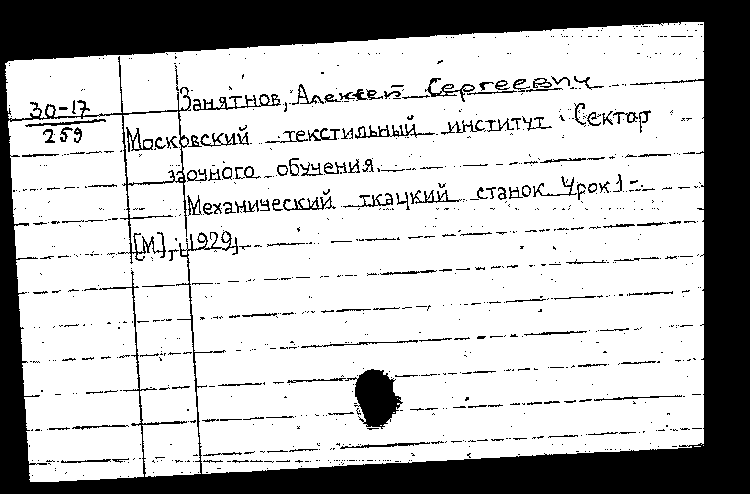 30-17
259
Занятнов, Алексей Сергеевич
Московский текстильный институт Сектор
заочного обучения.
Механический ткацкий станок Урок 1-.
[М.], [1929]